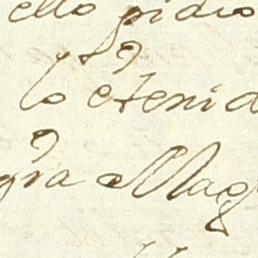 ello pidio
lo etenid
gra Mag